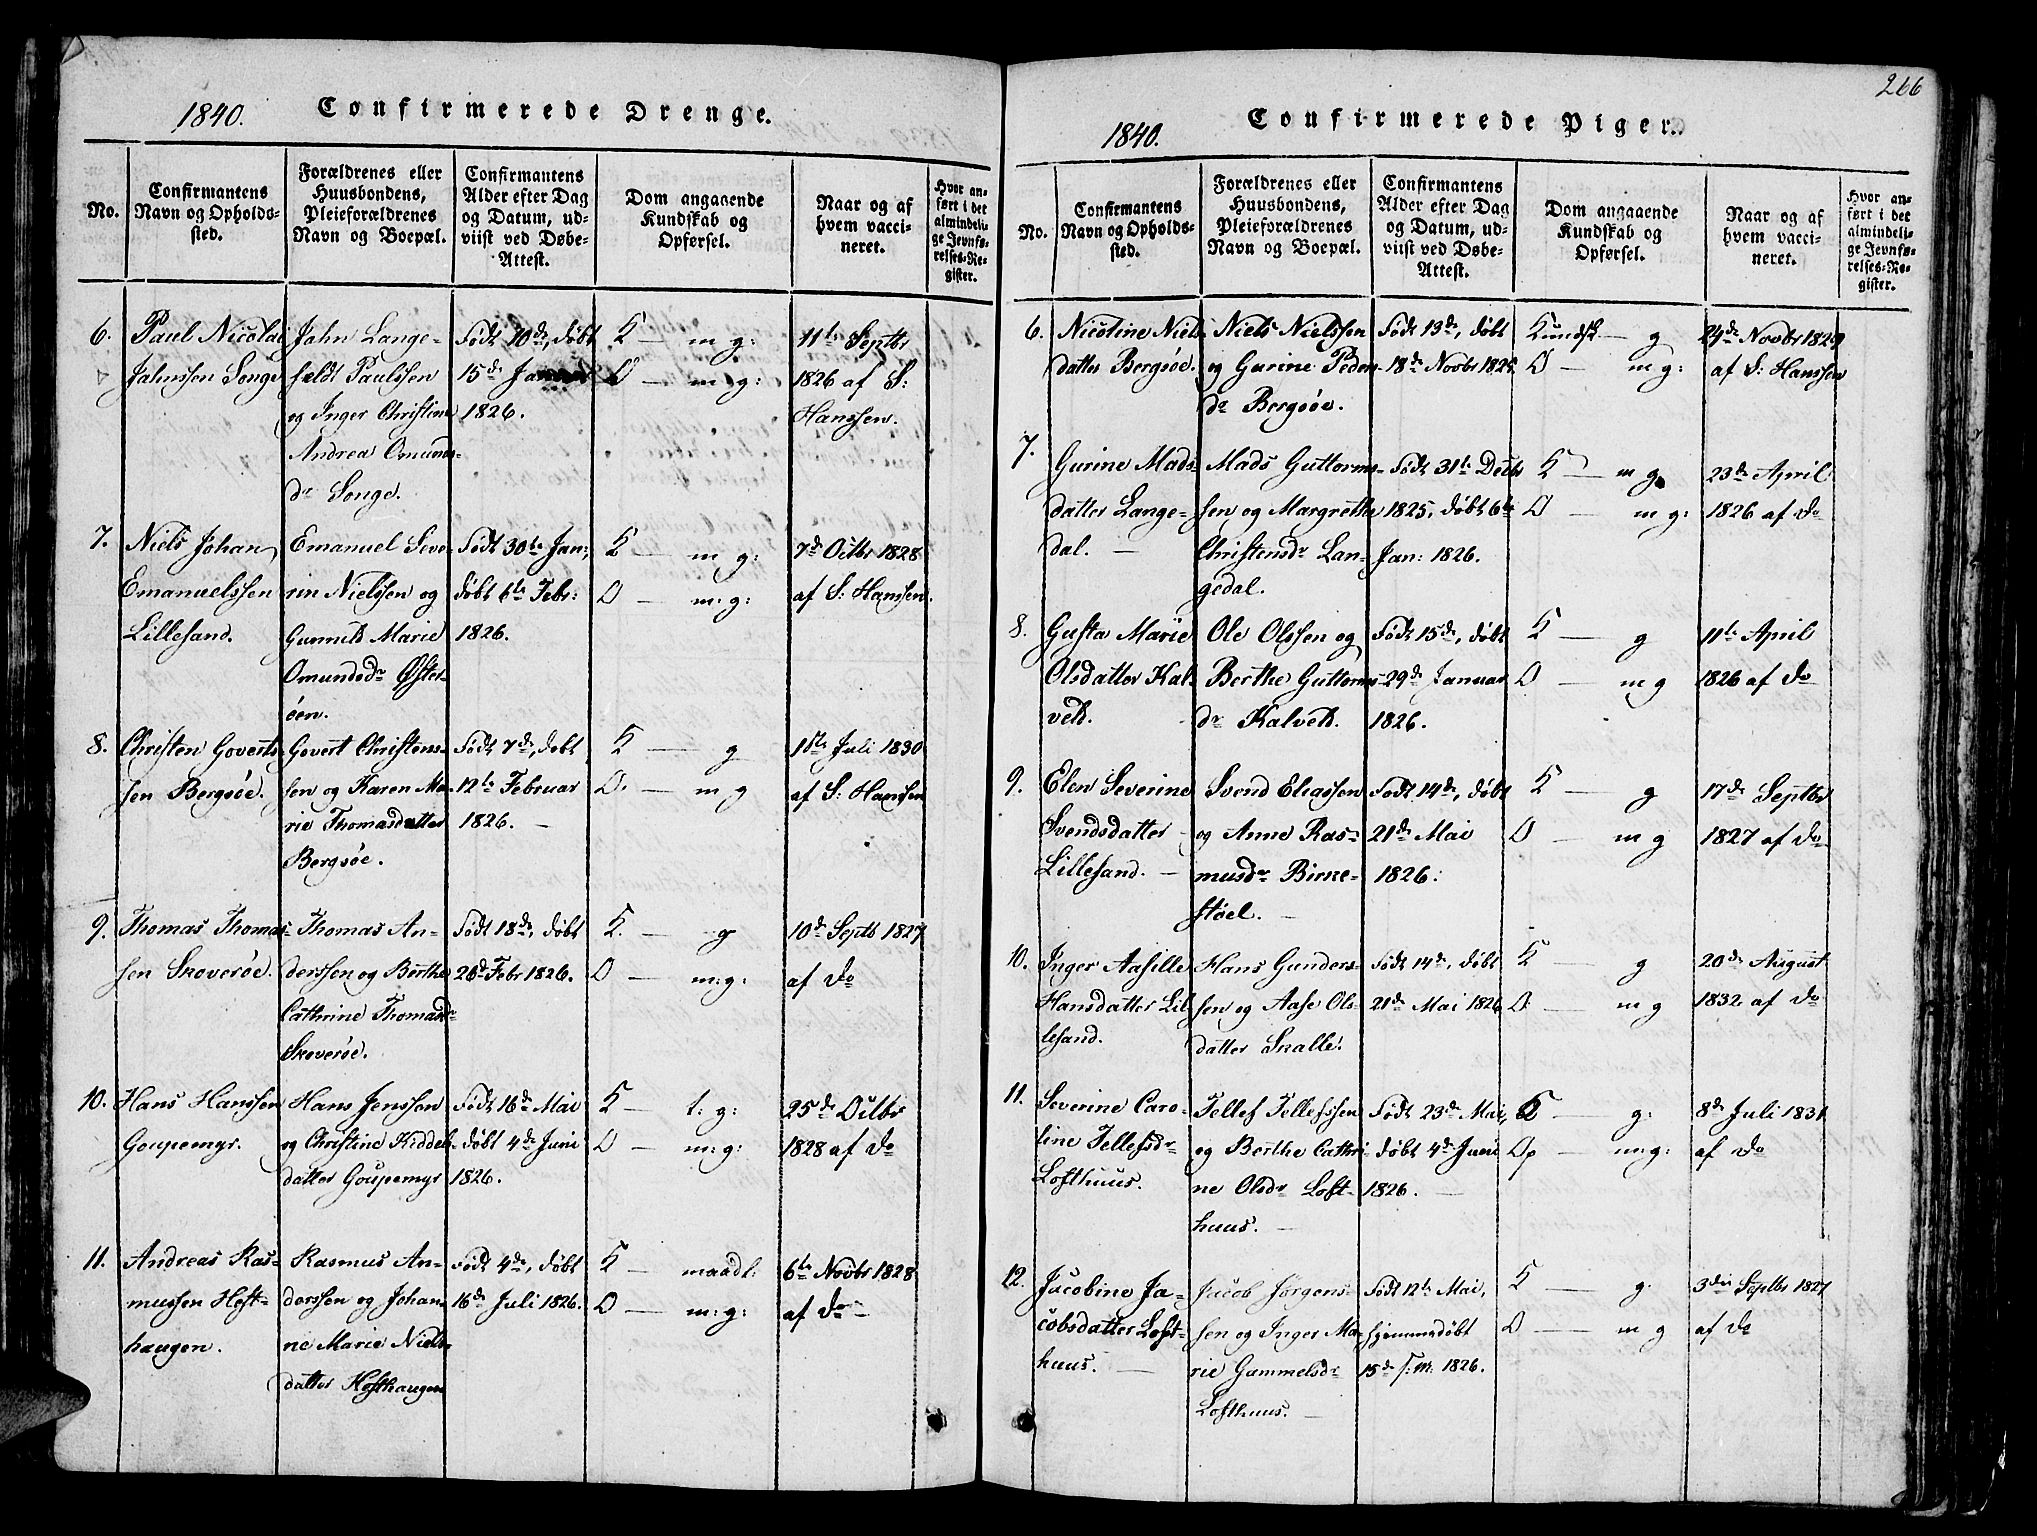 1840. Confirmerede Drenge.
No.
Confirmantens
Navn og Opholds-
sted.
Forældrenes eller
Huusbondens,
Pleieforældrenes
Navn og Boepæl.
Confirmantens
Alder efter Dag
og Datum, ud-
viist ved Døbe-
Attest.
Dom angaaende
Kundskab og
Opførsel.
Naar og af
hvem vacci-
neret.
Hvor an-
ført i det
almindeli-
ge Jevnfø-
relses-Re-
gister.
6.
Paul Nicolai
Jahnssen Songe
Jahn Lange-
feldt Paulssen
og Inger Christine
Andrea Omunds-
dr Songe.
Født 10de, døbt
15de Januar
1826.
K — m g:
O — m g:
11te Septbr
1826 af S:
Hanssen.
7.
Niels Johan
Emanuelssen
Lillesand.
Emanuel Seve-
rin Nielssen og
Gunnild Marie
Omundsdr Øster-
öen.
Født 30te Jan:,
døbt 6te Febr:
1826.
K — m g:
O — m: g:
7de Octbr 1828
af S: Hanssen.
8.
Christen Goverts-
sen Bergsøe.
Govert Christens-
sen og Karen Ma-
rie Thomasdatter
Bergsøe.
Født 7de, døbt
12te Februar
1826. —
K — g
O. — m g
1ste Juli 1830
af S: Hanssen
9.
Thomas Thomas-
sen Skoverøe.
Thomas An-
derssen og Berthe
Cathrine Thomasdr
Skoverøe.
Født 18de, døbt
26de Febr 1826.
K. — g
O — m: g:
10de Septb 1827
af do
10.
Hans Hanssen
Goupemyr.
Hans Jenssen
og Christine Kiddels-
datter Goupemyr
Født 16de Mai
døbt 4de Juni
1826.
K — t: g:
O — m: g:
25de Octbr
1828 af do
11.
Andreas Ras-
mussen Heft-
haugen.
Rasmus An-
derssen og Johan-
ne Marie Niels-
datter Hefthaugen
Født 4de, døbt
16de Juli 1826.
K — maadl:
O — m: g:
6te Novbr 1828
af do —
266
1840. Confirmerede Piger.
No.
Confirmantens
Navn og Opholds-
sted.
Forældrenes eller
Huusbondens,
Pleieforældrenes
Navn og Boepæl.
Confirmantens
Alder efter Dag
og Datum, ud-
viist ved Døbe-
Attest.
Dom angaaende
Kundskab og
Opførsel.
Naar og af
hvem vacci-
neret.
Hvor an-
ført i det
almindeli-
ge Jevnfø-
relses-Re-
gister.
6.
Nicoline Niels-
datter Bergsöe.
Niels Nielssen
og Gurine Peders-
dr Bergsöe.
Født 13de, døbt
18de Novbr 1825
Kundsk — g
O — m g:
24de Novbr 1829
af S: Hanssen
7.
Gurine Mads-
datter Lange-
dal. —
Mads Guttorms-
sen og Margrethe
Christensdr Lan-
gedal.
Født 31te Decbr
1825, døbt 6te
Jan: 1826.
K — m g.
O — m g:
23de April
1826 af do
8.
Gusta Marie
Olsdatter Kal-
veld.
Ole Olssen og
Berthe Guttorms-
dr Kalveld.
Født 15de, døbt
29de Januar
1826.
K — g
O — m g
11te April
1826 af do
9.
Elen Severine
Svendsdatter
Lillesand. —
Svend Eliassen
og Anne Ras-
musdr Birke-
støel. —
Født 14de, døbt
21de Mai
1826:
K — g
O — m g
17de Septbr
1827 af do
10.
Inger Aasille
Hansdatter Lil-
lesand.
Hans Gunders-
sen og Aase Ols-
datter Skalle.
Født 14de, døbt
21de Mai 1826
K — g
O: — m g
20de August
1832 af do
11.
Severine Caro-
line Tellefsdr
Lofthuus.
Tellef Tellefssen
og Berthe Cathri-
ne Olsdr Loft-
huus. —
Født 23de Mai,
døbt 4de Juni
1826. —
K — g:
Op — m: g:
8de Juli 1831
af do
12.
Jacobine Ja-
cobsdatter Loft-
huus. —
Jacob Jørgens-
sen og Inger Ma-
rie Gammelsdr
Lofthuus. —
Født 12te Mai,
hjemmedøbt
15de s: m: 1826.
K — g.
O — m g
3die Septbr 1827
af do